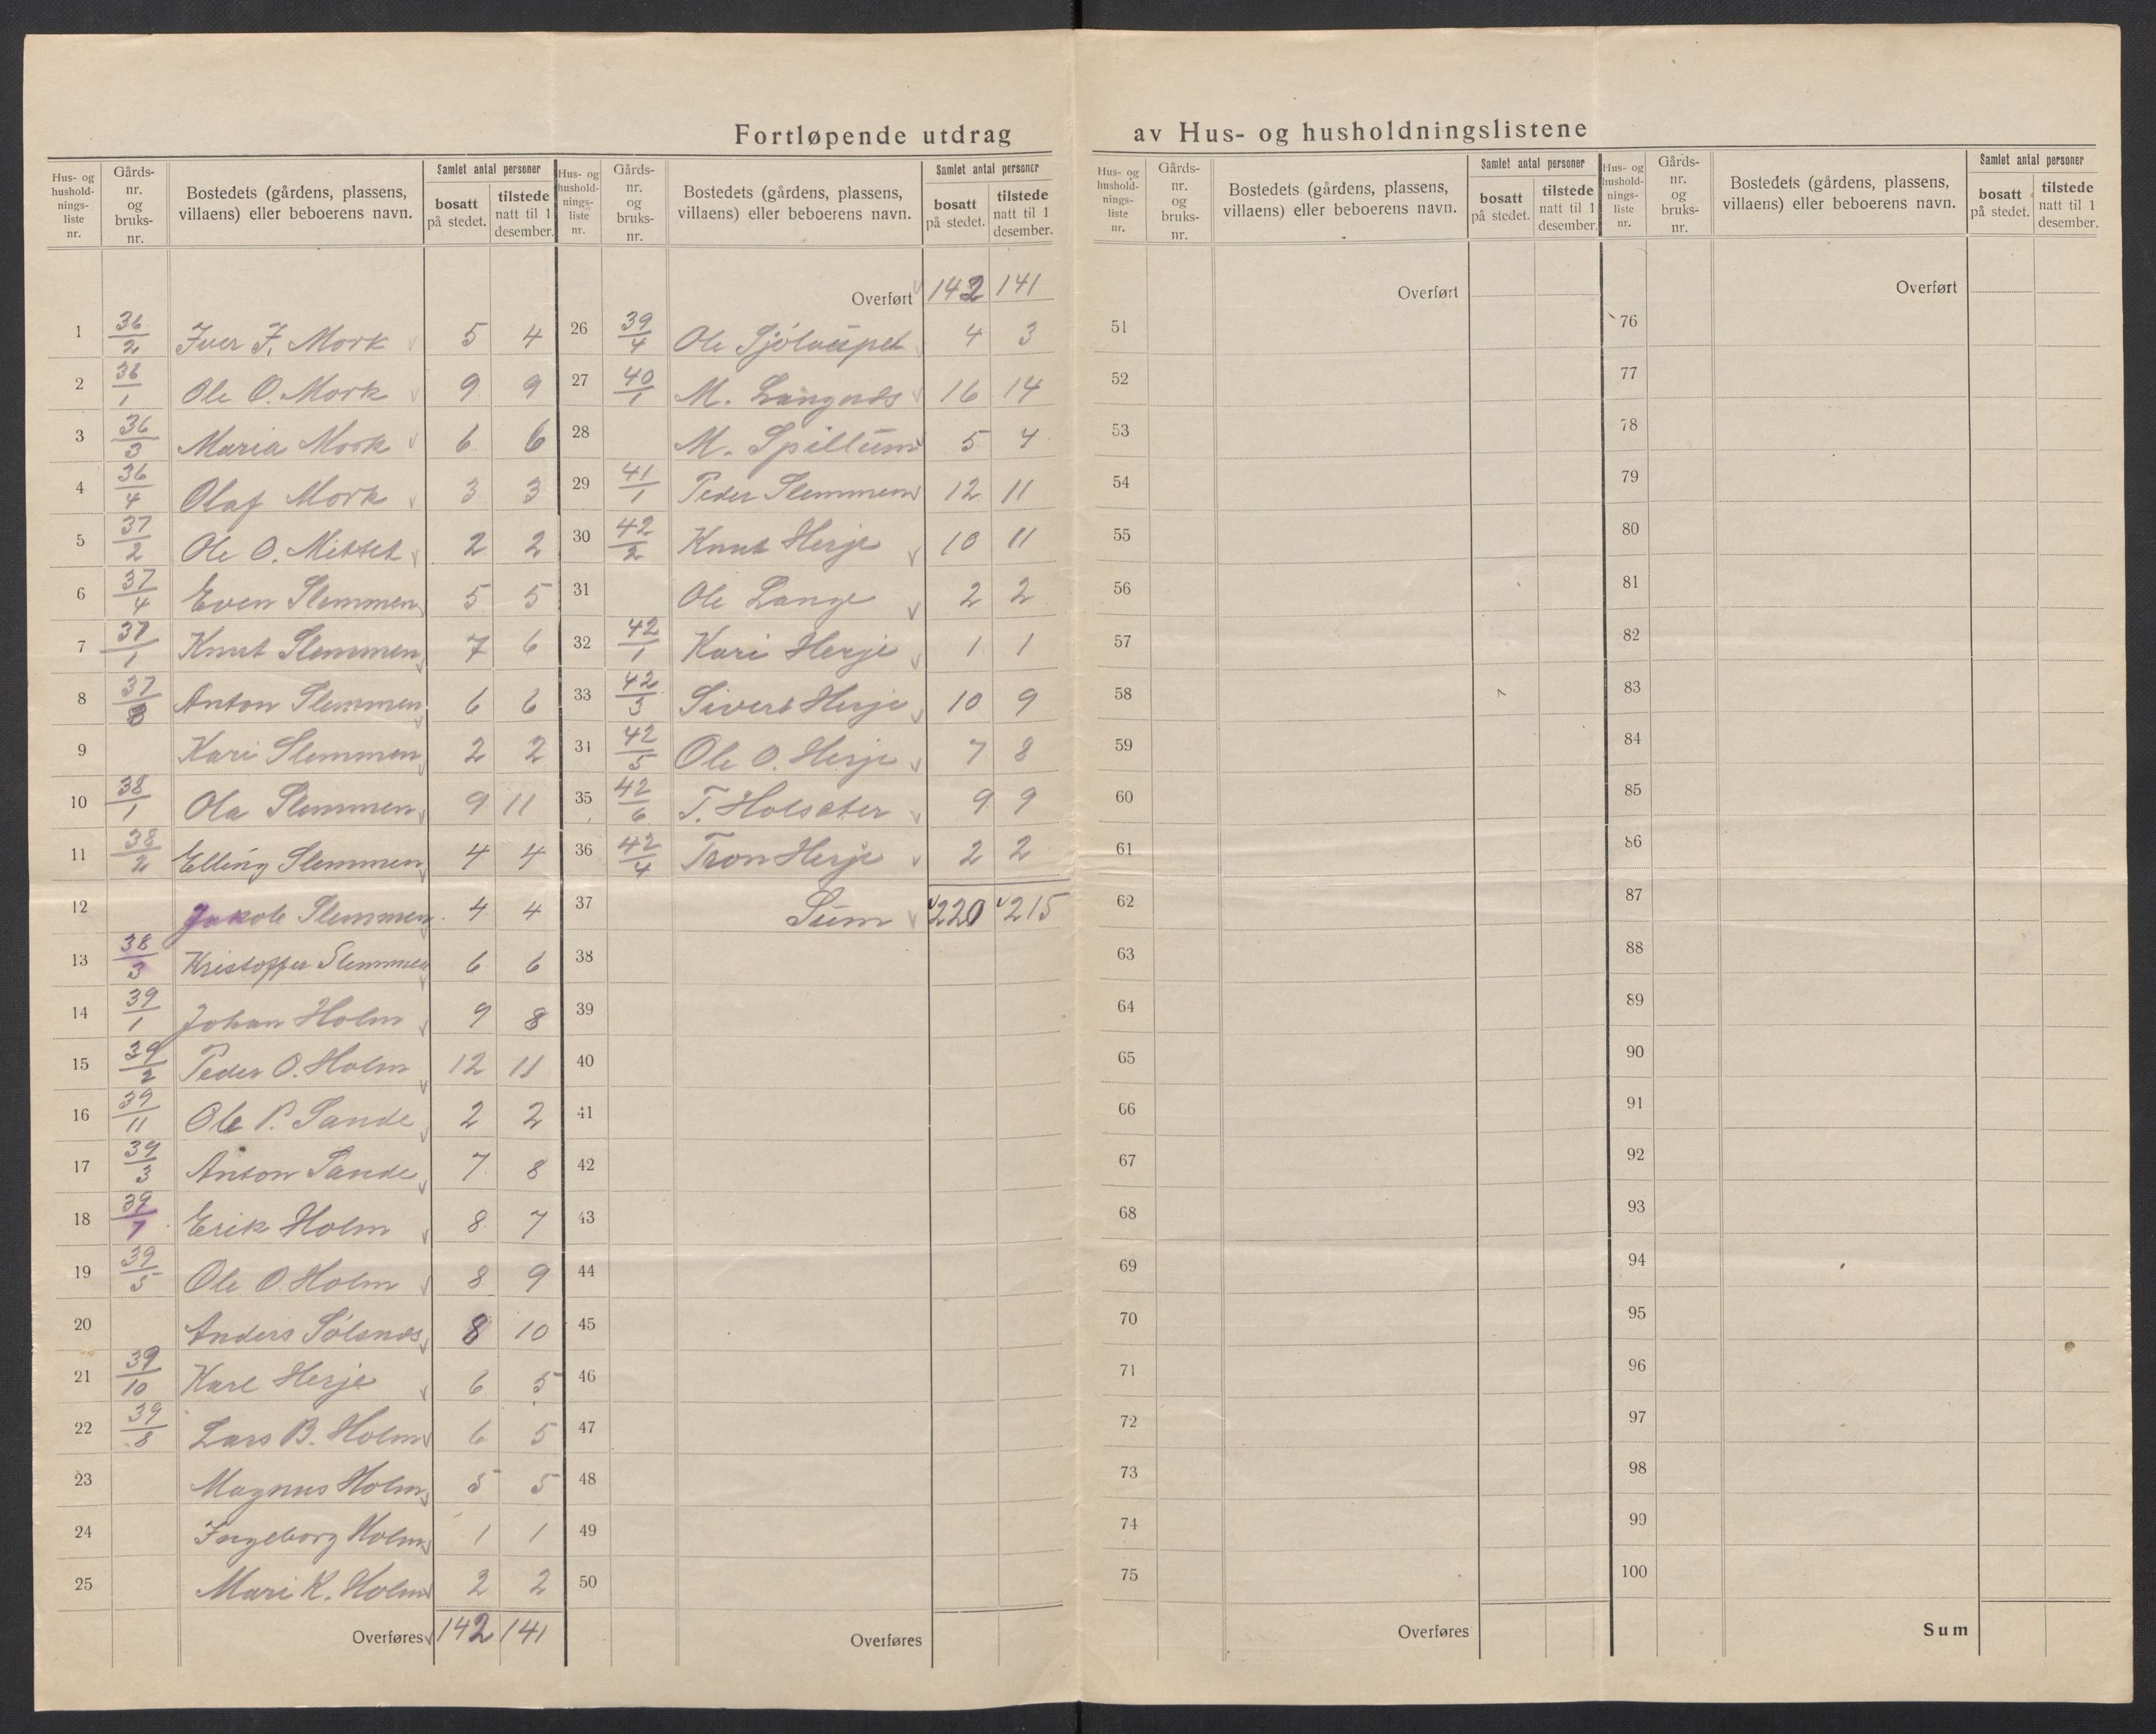 Fortløpende utdrag av Hus- og husholdningslistene
Hus- og hushold-nings-liste nr. | Gårds-nr. og bruks-nr. | Bostedets (gårdens, plassens, villaens) eller beboerens navn. | Samlet antal personer | bosatt på stedet. | tilstede natt til 1 desember.
1 36/2 Iver J. Mork 5 4
2 36/1 Ole O. Mork 9 9
3 36/3 Maria Mork 6 6
4 36/4 Olaf Mork 3 3
5 37/2 Ole O. Mittet 2 2
6 37/4 Even Slemmen 5 5
7 37/1 Knut Slemmen 7 6
8 37/8 Anton Slemmen 6 6
9 Kari Slemmen 2 2
10 38/1 Ola Slemmen 9 11
11 38/2 Elling Slemmen 4 4
12 Jakob Slemmen 4 4
13 38/3 Kristoffer Slemmen 6 6
14 39/1 Johan Holm 9 8
15 39/2 Peder O. Holm 12 11
16 39/11 Ole P. Sande 2 2
17 39/3 Anton Sande 7 8
18 39/7 Erik Holm 8 7
19 39/5 Ole O. Holm 8 9
20 Anders Sølsnes 8 10
21 39/10 Karl Herje 6 5
22 39/8 Lars B. Holm 6 5
23 Magnus Holm 5 5
24 Ingeborg Holm 1 1
25 Mari K. Holm 2 2
Overføres 142 141
Hus- og hushold-nings-liste nr. | Gårds-nr. og bruks-nr. | Bostedets (gårdens, plassens, villaens) eller beboerens navn. | Samlet antal personer | bosatt på stedet. | tilstede natt til 1 desember.
Overført 142 141
26 39/4 Ole 4 3
27 40/1 M. Langnes 16 14
28 M. Spillum 5 4
29 41/1 Peder Slemmen 12 11
30 42/2 Knut Herje 10 11
31 Ole Lange 2 2
32 42/1 Kari Herje 1 1
33 42/3 Sivert Herje 10 9
34 42/5 Ole O. Herje 7 8
35 42/6 T. Holseter 9 9
36 42/4 Tron Herje 2 2
37 Sum 220 215
38
39
40
41
42
43
44
45
46
47
48
49
50
Overføres
Hus- og hushold-nings-liste nr. | Gårds-nr. og bruks-nr. | Bostedets (gårdens, plassens, villaens) eller beboerens navn. | Samlet antal personer | bosatt på stedet. | tilstede natt til 1 desember.
Overført
51
52
53
54
55
56
57
58
59
60
61
62
63
64
65
66
67
68
69
70
71
72
73
74
75
Overføres
Hus- og hushold-nings-liste nr. | Gårds-nr. og bruks-nr. | Bostedets (gårdens, plassens, villaens) eller beboerens navn. | Samlet antal personer | bosatt på stedet. | tilstede natt til 1 desember.
Overført
76
77
78
79
80
81
82
83
84
85
86
87
88
89
90
91
92
93
94
95
96
97
98
99
100
Sum